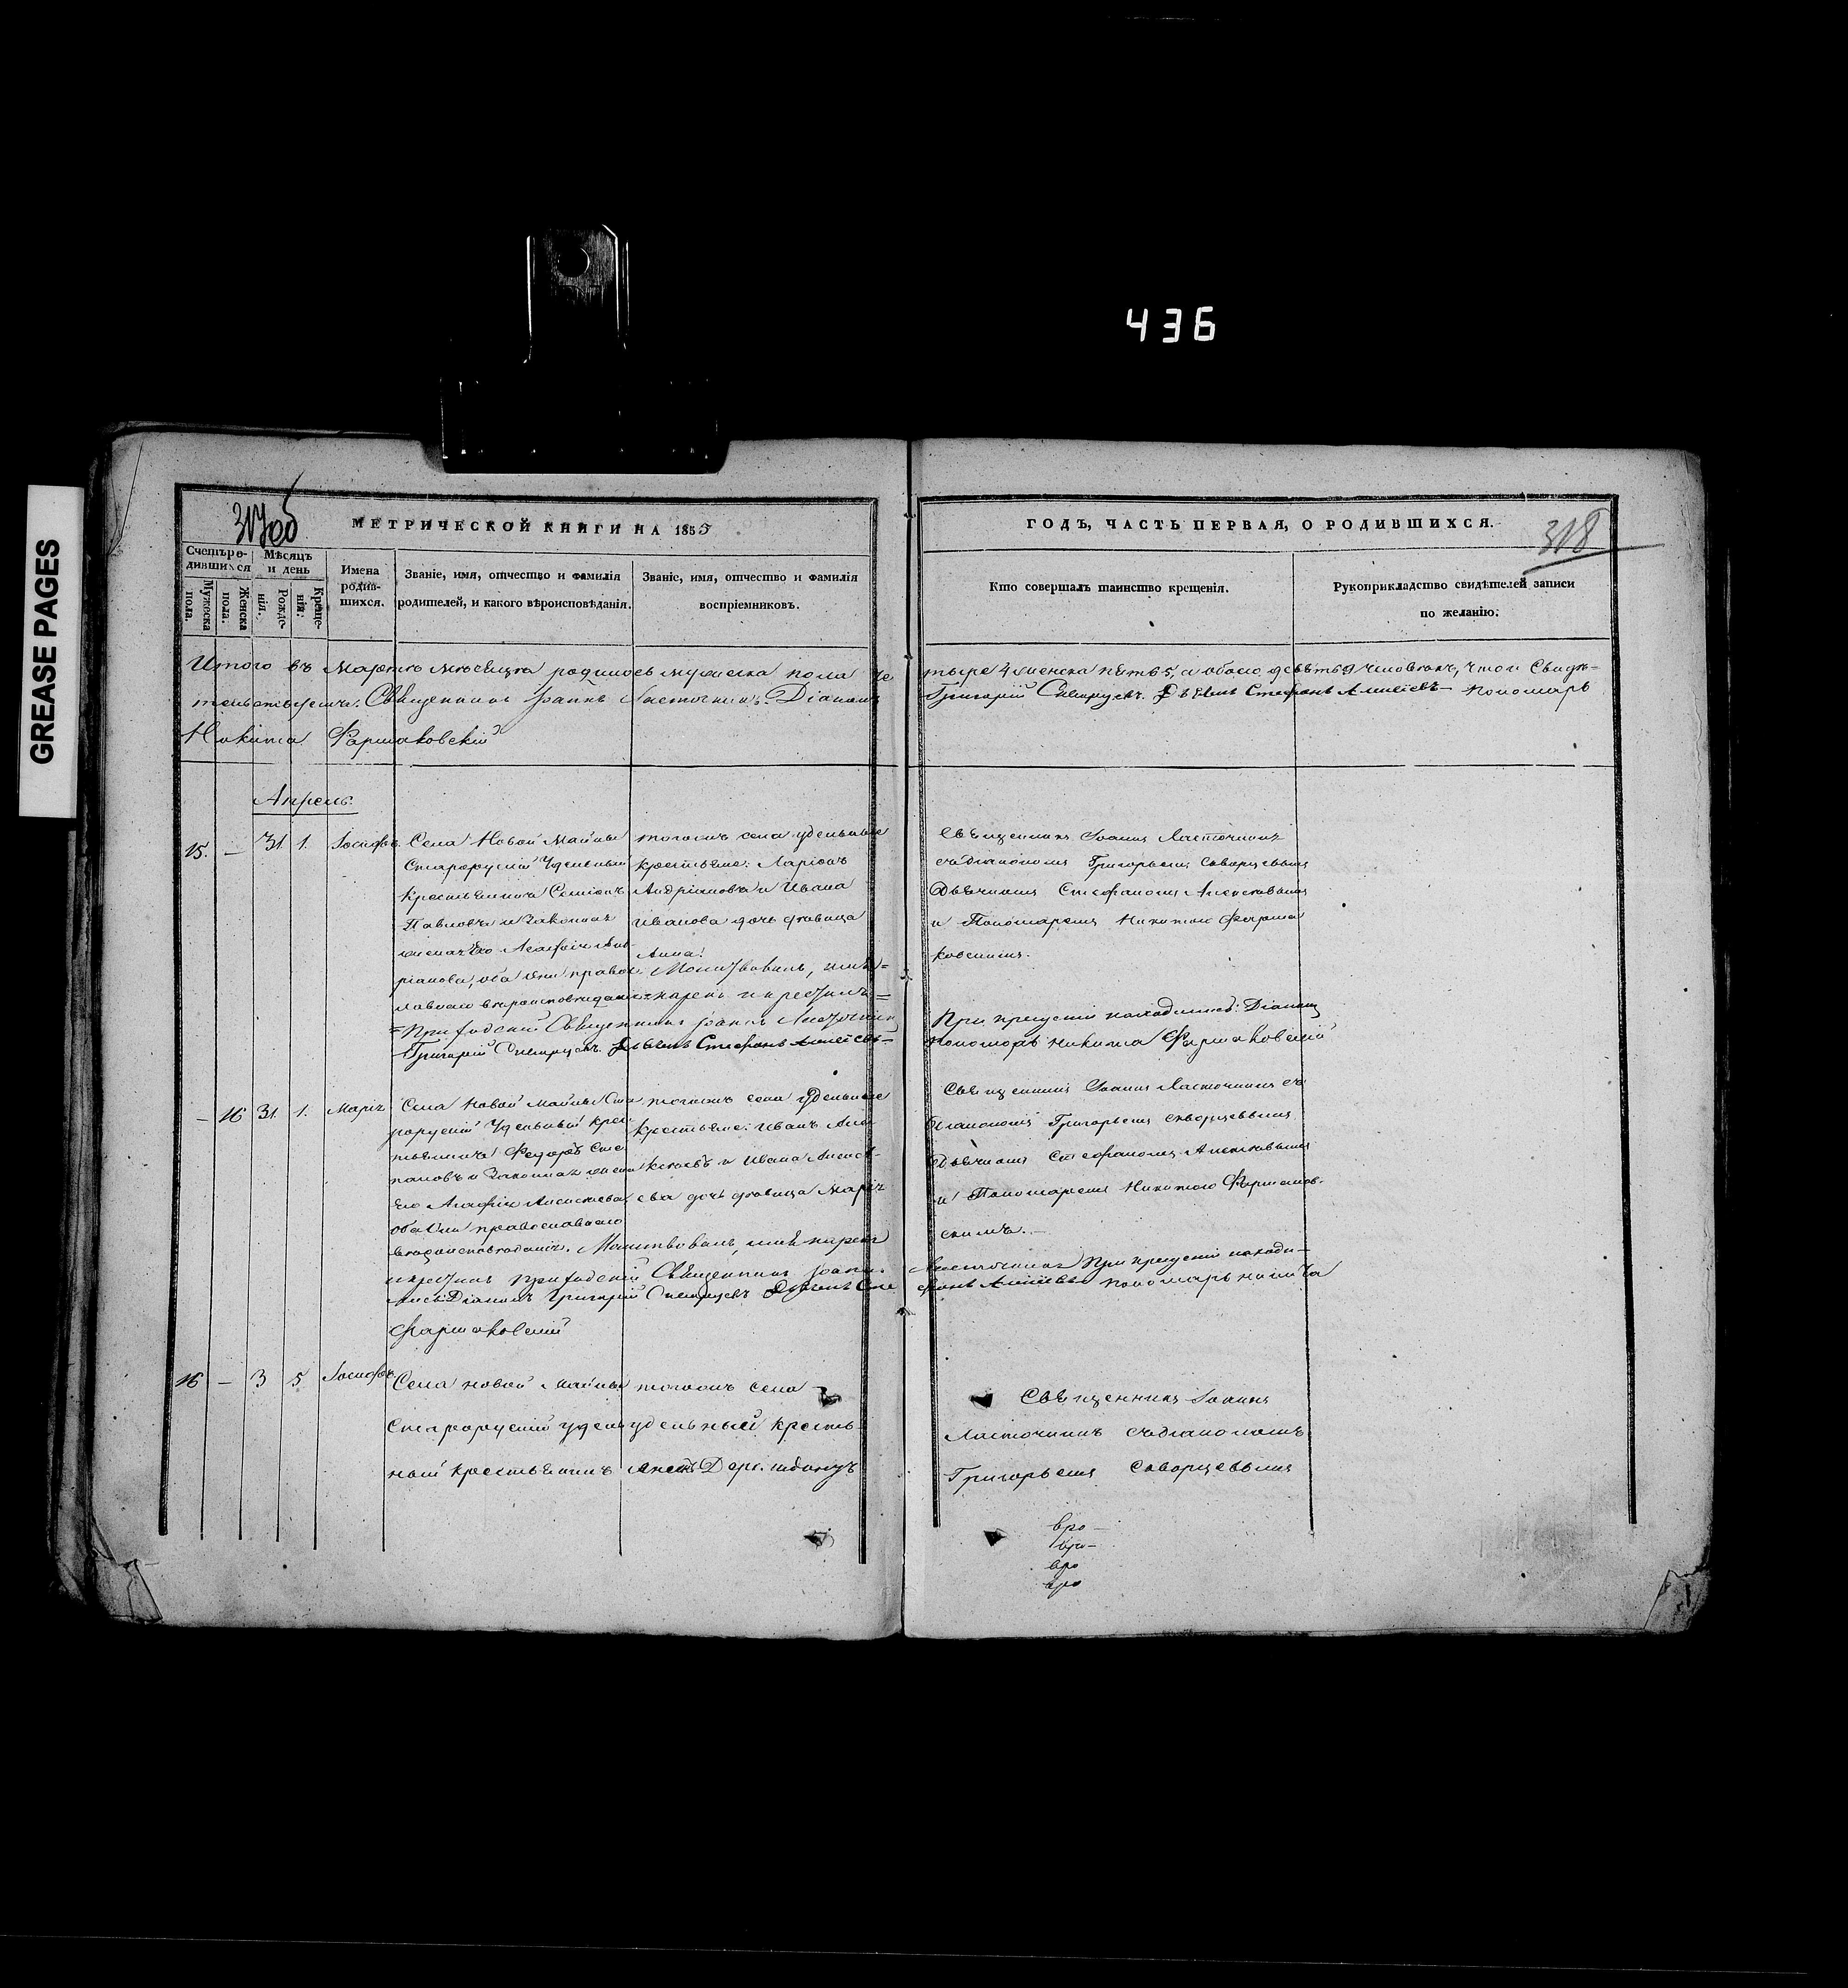 436
GREASE PAGES
317об
МЕТРИЧЕСКОЙ КНИГИ НА 1855
ГОДЪ, ЧАСТЬ ПЕРВАЯ, О РОДИВШИХСЯ.
318
Счетъ ро-
дившихся
Мужеска
пола.
Женска
пола.
Мѣсяцъ
и день
Рожде-
нія.
Креще-
нія.
Имена
родив-
шихся.
Званіе, имя, отчество и фамилія
родителей, и какого вѣроисповѣданія.
Званіе, имя, отчество и фамилія
воспріемниковъ.
Кто совершалъ таинство крещенія.
Рукоприкладство свидѣтелей записи
по желанію.
Итого въ Мартѣ мѣсяцѣ родилось мужеска пола че
тыре 4 женска пять 5, а обоего девять 9 человѣкъ, что и Свидѣ-
Священникъ Іоаннъ Ласточкинъ. Діаконъ
Григорій Скворцевъ. Дьячекъ Стефанъ Алексѣевъ пономарь
Никита Фармаковскій
Апрель.
15. — 31 1. Іосифъ.
Села Новой Майны
Старорускій Удельный
Крестьянинъ Семіонъ
Павловъ и Законная
жена Его Агафія Анд-
ріанова, оба они правос-
лавнаго вѣроисповѣданія
того жъ села удельные
Крестьяне: Ларіонъ
Андріановъ и Ивана
Иванова дочь девица
Анна.
Молитвовалъ, имя
нарекъ и крестилъ
Приходскій Священникъ Іоаннъ Ласточкинъ
Григорій Скворцевъ. Дьячекъ Стефанъ Алексѣевъ
Священникъ Іоаннъ Ласточкинъ
съ діакономъ Григорьемъ Скворцевымъ
Дьячкомъ Стефаномъ Алексеевымъ
и Пономаремъ Никитою Фарма
ковскимъ.
При крещеніи находились: Діаконъ
пономарь Никита Фармаковскій
— 16 31. 1. Марія
Села Новой Майны Ста
рорускій Удельный Крес
тьянинъ Федоръ Сте
пановъ и Законная жена
Его Агафія Алексеева,
оба они православнаго
вѣроисповѣданія.
того жъ села Удельные
Крестьяне: Иванъ Але
ксеевъ и Ивана Алексе-
ева дочь девица Марія
Молитвовалъ, имя нарекъ
и крестилъ Приходскій Священникъ Іоаннъ
Ласточкинъ При крещеніи находи-
лись: Діаконъ Григорій Скворцевъ Дьячекъ Сте
фанъ Алексѣевъ пономарь Никита
Фармаковскій
Священникъ Іоаннъ Ласточкинъ съ
діакономъ Григорьемъ Скворцевымъ
Дьячкомъ Стефаномъ Алексеевымъ
и Пономаремъ Никитою Фармаков-
скимъ.
16 — 3 5 Іосифъ.
Села Новой Майны
Старорускій удель
ный Крестьянинъ
того жъ села
удельный Кресть
Священникъ Іоаннъ
Ласточкинъ съ діакономъ
Григорьемъ Скворцевымъ
вро-
вро-
вро
вро